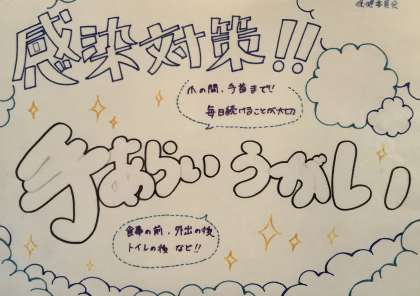 保健委員会
感染対策!!
爪の間、手首まで!!
毎日続けることが大切
手あらい うがい
食事の前、外出の後
トイレの後 など!!